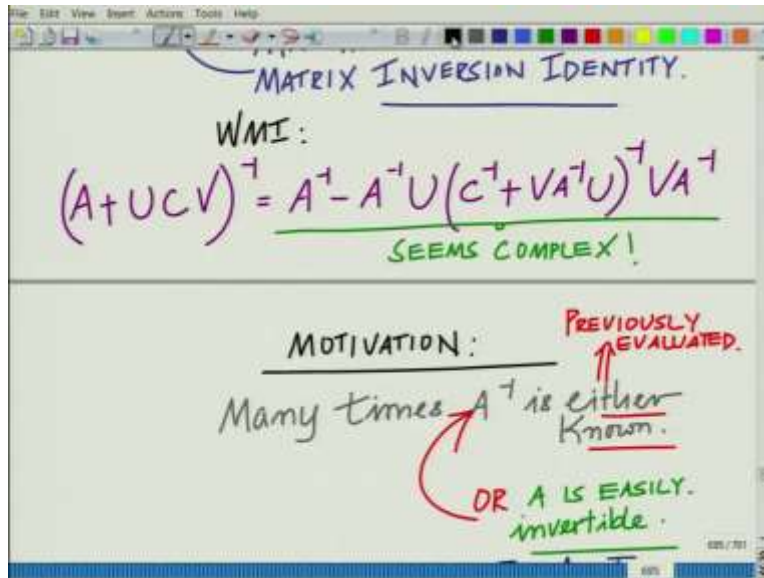 File Edit View Insert Actions Tools Help
MATRIX INVERSION IDENTITY.
WMI:
(A+UCV)⁻¹ = A⁻¹ - A⁻¹U(C⁻¹+VA⁻¹U)⁻¹VA⁻¹
SEEMS COMPLEX!
MOTIVATION:
PREVIOUSLY
EVALUATED.
Many times A⁻¹ is either
Known.
OR A IS EASILY.
invertible.
695/701
695